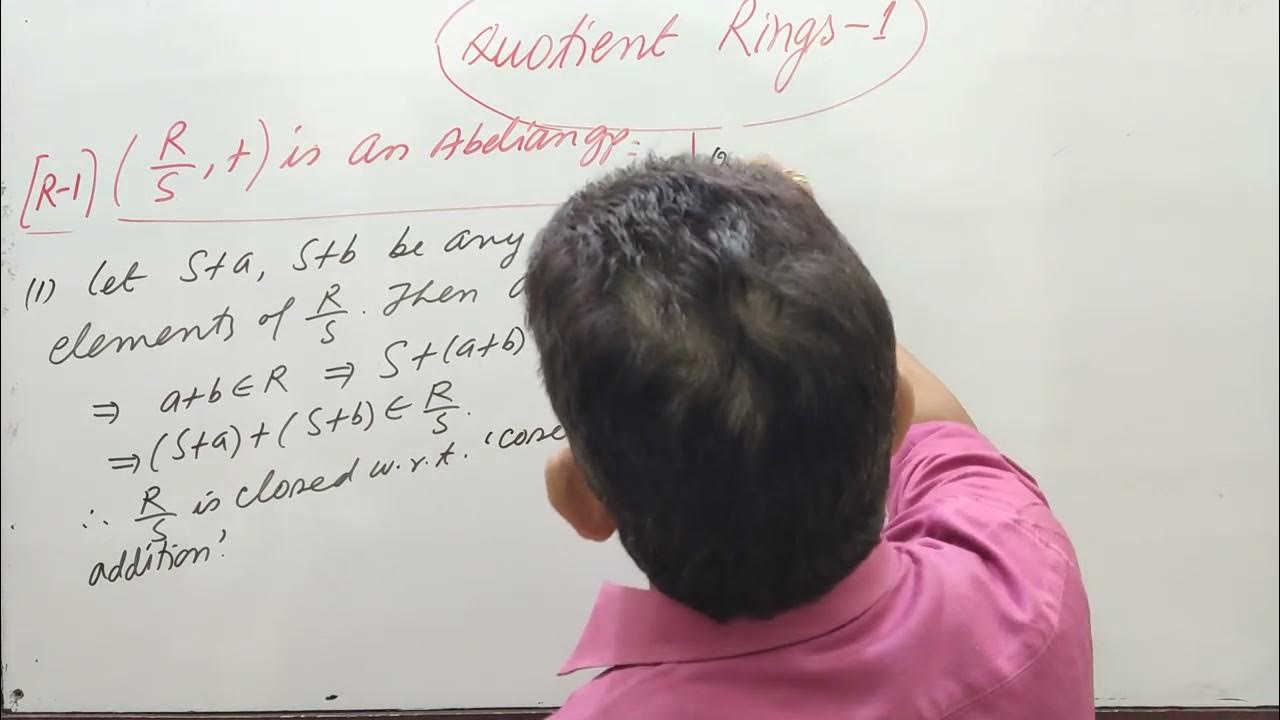 Quotient Rings-1
[R-1] (R/S, +) is an Abelian gp:
(1) let S+a, S+b be any
elements of R/S. Then
⇒ a+b ∈ R ⇒ S+(a+b)
⇒ (S+a)+(S+b) ∈ R/S.
∴ R/S is closed w.r.t. '
addition'
(2